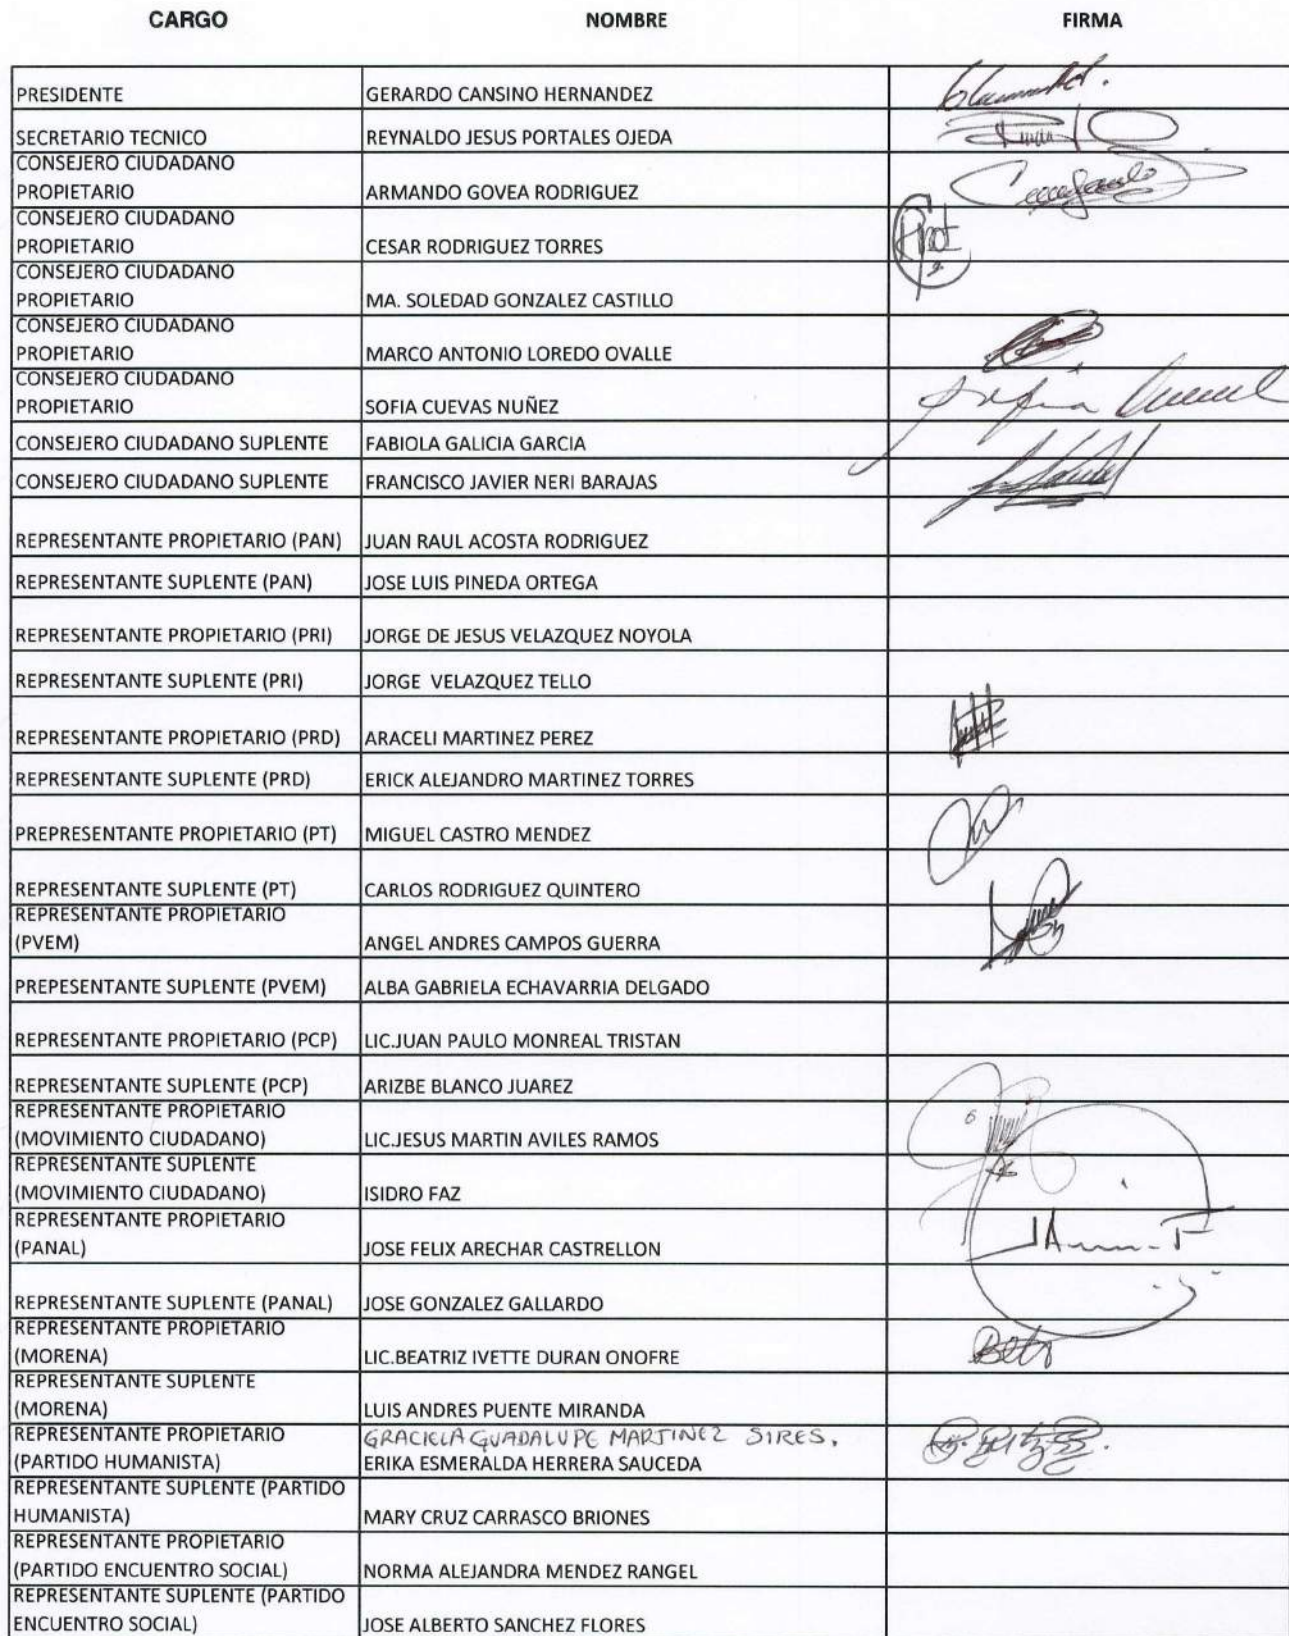 CARGO NOMBRE FIRMA
PRESIDENTE GERARDO CANSINO HERNANDEZ
SECRETARIO TECNICO REYNALDO JESUS PORTALES OJEDA
CONSEJERO CIUDADANO
PROPIETARIO ARMANDO GOVEA RODRIGUEZ
CONSEJERO CIUDADANO
PROPIETARIO CESAR RODRIGUEZ TORRES
CONSEJERO CIUDADANO
PROPIETARIO MA. SOLEDAD GONZALEZ CASTILLO
CONSEJERO CIUDADANO
PROPIETARIO MARCO ANTONIO LOREDO OVALLE
CONSEJERO CIUDADANO
PROPIETARIO SOFIA CUEVAS NUÑEZ
CONSEJERO CIUDADANO SUPLENTE FABIOLA GALICIA GARCIA
CONSEJERO CIUDADANO SUPLENTE FRANCISCO JAVIER NERI BARAJAS
REPRESENTANTE PROPIETARIO (PAN) JUAN RAUL ACOSTA RODRIGUEZ
REPRESENTANTE SUPLENTE (PAN) JOSE LUIS PINEDA ORTEGA
REPRESENTANTE PROPIETARIO (PRI) JORGE DE JESUS VELAZQUEZ NOYOLA
REPRESENTANTE SUPLENTE (PRI) JORGE VELAZQUEZ TELLO
REPRESENTANTE PROPIETARIO (PRD) ARACELI MARTINEZ PEREZ
REPRESENTANTE SUPLENTE (PRD) ERICK ALEJANDRO MARTINEZ TORRES
PREPRESENTANTE PROPIETARIO (PT) MIGUEL CASTRO MENDEZ
REPRESENTANTE SUPLENTE (PT) CARLOS RODRIGUEZ QUINTERO
REPRESENTANTE PROPIETARIO
(PVEM) ANGEL ANDRES CAMPOS GUERRA
PREPESENTANTE SUPLENTE (PVEM) ALBA GABRIELA ECHAVARRIA DELGADO
REPRESENTANTE PROPIETARIO (PCP) LIC.JUAN PAULO MONREAL TRISTAN
REPRESENTANTE SUPLENTE (PCP) ARIZBE BLANCO JUAREZ
REPRESENTANTE PROPIETARIO
(MOVIMIENTO CIUDADANO) LIC.JESUS MARTIN AVILES RAMOS
REPRESENTANTE SUPLENTE
(MOVIMIENTO CIUDADANO) ISIDRO FAZ
REPRESENTANTE PROPIETARIO
(PANAL) JOSE FELIX ARECHAR CASTRELLON
REPRESENTANTE SUPLENTE (PANAL) JOSE GONZALEZ GALLARDO
REPRESENTANTE PROPIETARIO
(MORENA) LIC.BEATRIZ IVETTE DURAN ONOFRE
REPRESENTANTE SUPLENTE
(MORENA) LUIS ANDRES PUENTE MIRANDA
REPRESENTANTE PROPIETARIO GRACIELA GUADALUPE MARTINEZ SIRES.
(PARTIDO HUMANISTA) ERIKA ESMERALDA HERRERA SAUCEDA
REPRESENTANTE SUPLENTE (PARTIDO
HUMANISTA) MARY CRUZ CARRASCO BRIONES
REPRESENTANTE PROPIETARIO
(PARTIDO ENCUENTRO SOCIAL) NORMA ALEJANDRA MENDEZ RANGEL
REPRESENTANTE SUPLENTE (PARTIDO
ENCUENTRO SOCIAL) JOSE ALBERTO SANCHEZ FLORES